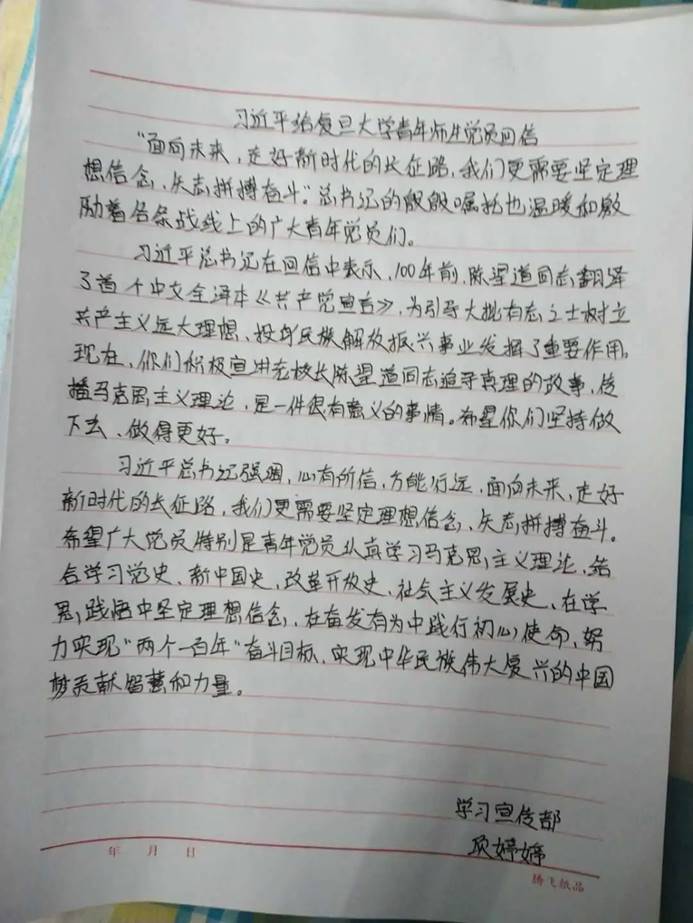 习近平给复旦大学青年师生党员回信
“面向未来,走好新时代的长征路,我们更需要坚定理
想信念、矢志拼搏奋斗”总书记的殷殷嘱托也温暖和激
励着各条战线上的广大青年党员们。
习近平总书记在回信中表示,100年前,陈望道同志翻译
了首个中文全译本《共产党宣言》,为引导大批有志之士树立
共产主义远大理想、投身民族解放振兴事业发挥了重要作用。
现在,你们积极宣讲老校长陈望道同志追寻真理的故事,传
播马克思主义理论,是一件很有意义的事情。希望你们坚持做
下去、做得更好。
习近平总书记强调,心有所信,方能行远,面向未来,走好
新时代的长征路,我们更需要坚定理想信念、矢志拼搏奋斗。
希望广大党员特别是青年党员认真学习马克思主义理论,结
合学习党史、新中国史、改革开放史、社会主义发展史、在学
思践悟中坚定理想信念,在奋发有为中践行初心使命,努
力实现“两个一百年”奋斗目标,实现中华民族伟大复兴的中国
梦贡献智慧和力量。
学习宣传部
婷婷
年 月 日
腾飞纸品